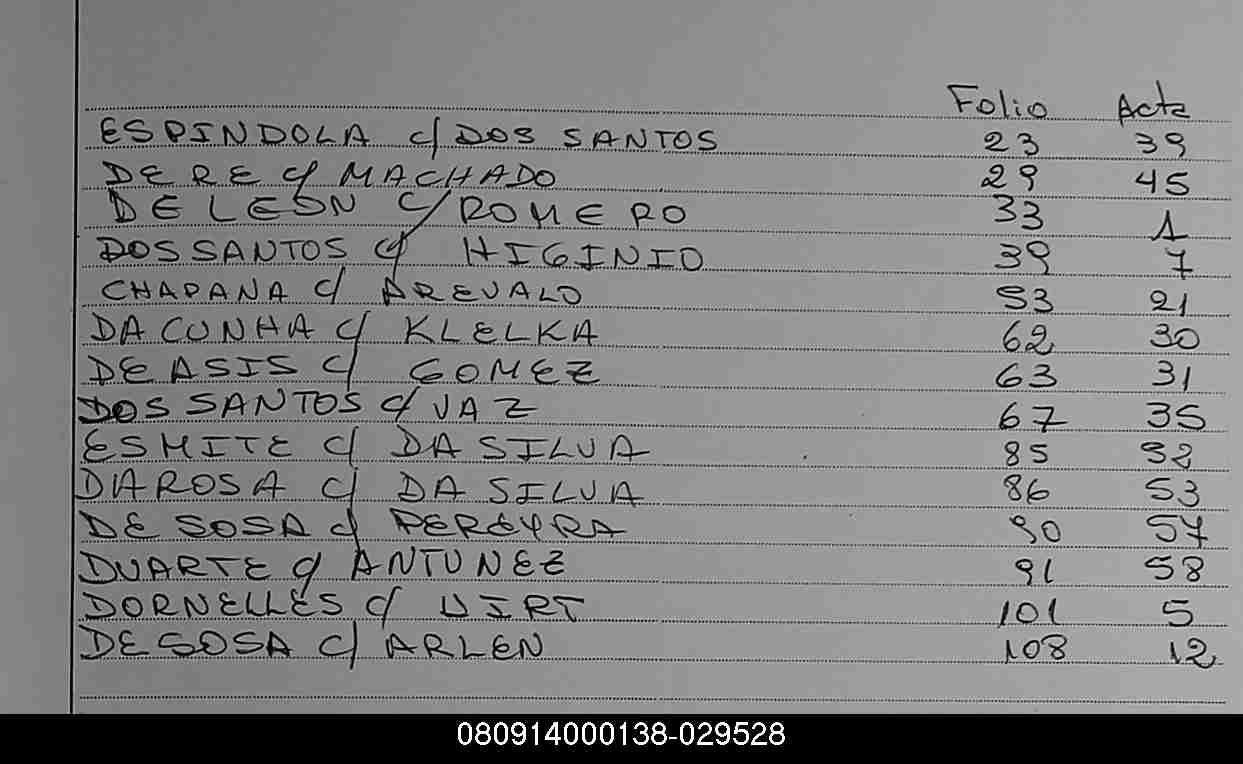 Folio Acta
ESPINDOLA c/ DOS SANTOS 23 39
DE RE c/ MACHADO 29 45
DE LEON c/ ROMERO 33 1
DOS SANTOS c/ HIGINIO 39 7
CHAPANA c/ AREVALO 53 21
DA CUNHA c/ KLELKA 62 30
DE ASIS c/ GOMEZ 63 31
DOS SANTOS c/ VAZ 67 35
ESMITE c/ DA SILVA 85 32
DA ROSA c/ DA SILVA 86 53
DE SOSA c/ PEREYRA 90 57
DUARTE c/ ANTUNEZ 91 58
DORNELLES c/ VIRT 101 5
DE SOSA c/ ARLEN 108 12
080914000138-029528